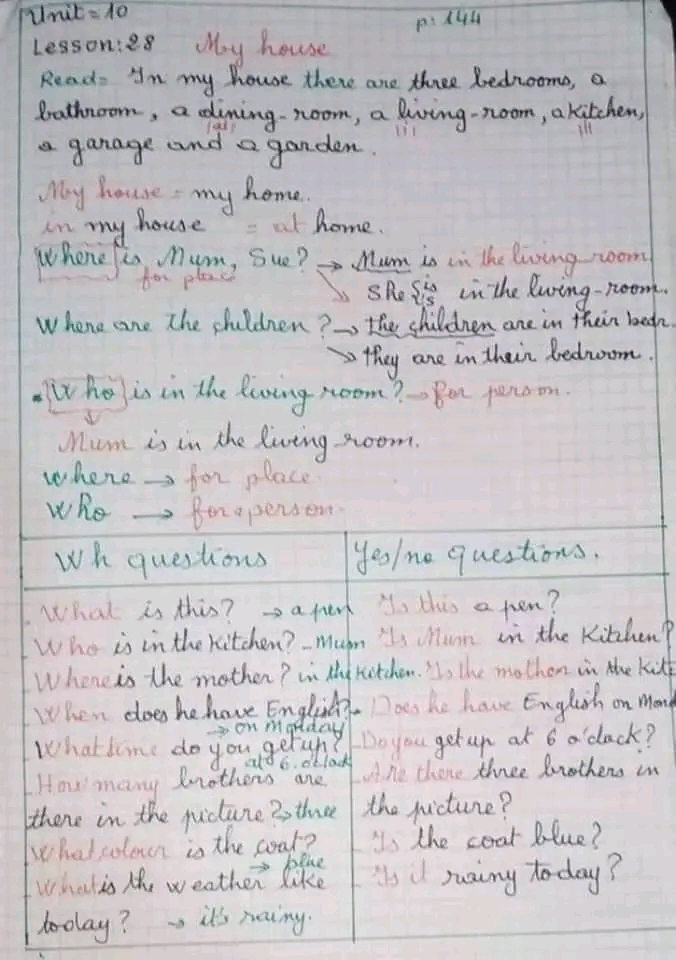 Unit = 10
p: 144
Lesson: 28 My house
Read= In my house there are three bedrooms, a
bathroom, a dining-room, a living-room, a kitchen,
/ai/ /i/ /i/
a garage and a garden.
My house = my home.
in my house = at home.
Where is Mum, Sue? → Mum is in the living room
for place
↘ She {is 's in the living-room.
Where are the children? → the children are in their bedr
↘ they are in their bedroom.
• Who is in the living room? → for person.
↓
Mum is in the living-room.
where → for place.
Who → for person.
Wh questions
Yes/no questions.
What is this? → a pen
Is this a pen?
Who is in the kitchen? - Mum
Is Mum in the Kitchen?
Where is the mother? in the Kitchen.
Is the mother in the Kit
When does he have English?
→ on Monday
Does he have English on Mond
What time do you get up?
at 6. o'clock
Do you get up at 6 o'clock?
How many brothers are
there in the picture? → three
Are there three brothers in
the picture?
What colour is the coat?
→ blue
Is the coat blue?
What is the weather like
today? → it's rainy.
Is it rainy today?